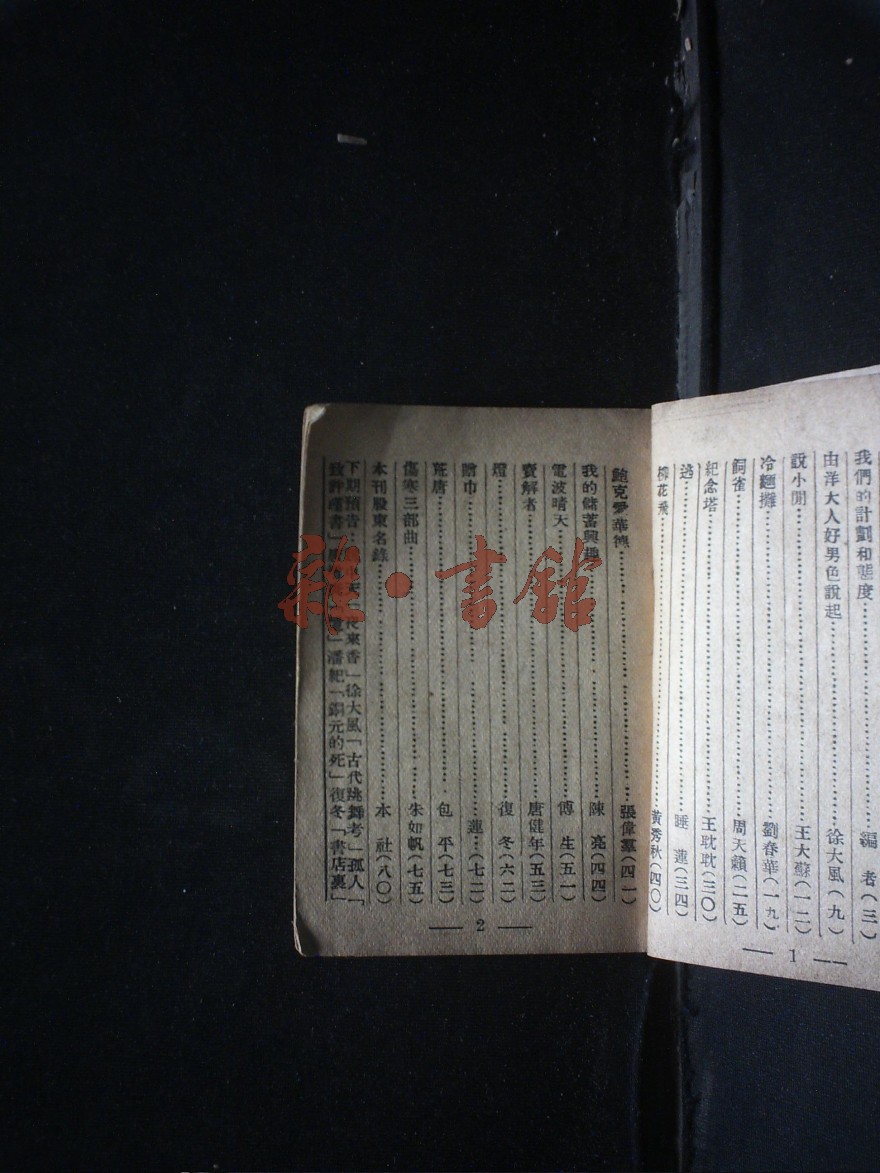 我們的計劃和態度……編者(三)
由洋大人好男色說起……徐大風(九)
說小開……王大蘇(一二)
冷麵攤……劉春華(一九)
飼雀……周天籟(二五)
紀念塔……王耽耽(三〇)
逃……睡蓮(三四)
柳花飛……黃秀秋(四〇)
— 1 —
鮑克愛華德……張偉羣(四一)
我的儲蓄興趣……陳亮(四四)
電波晴天……傅生(五一)
賣解者……唐健年(五三)
燈……復冬(六二)
贈巾……蓮…(七二)
荒唐……包平(七三)
傷寒三部曲……朱如帆(七五)
本刊股東名錄……本社(八〇)
下期預告…來香」徐大風「古代跳舞考」孤人「
書」潘紀「銅元的死」復冬「書店裏」
— 2 —
雜·書館